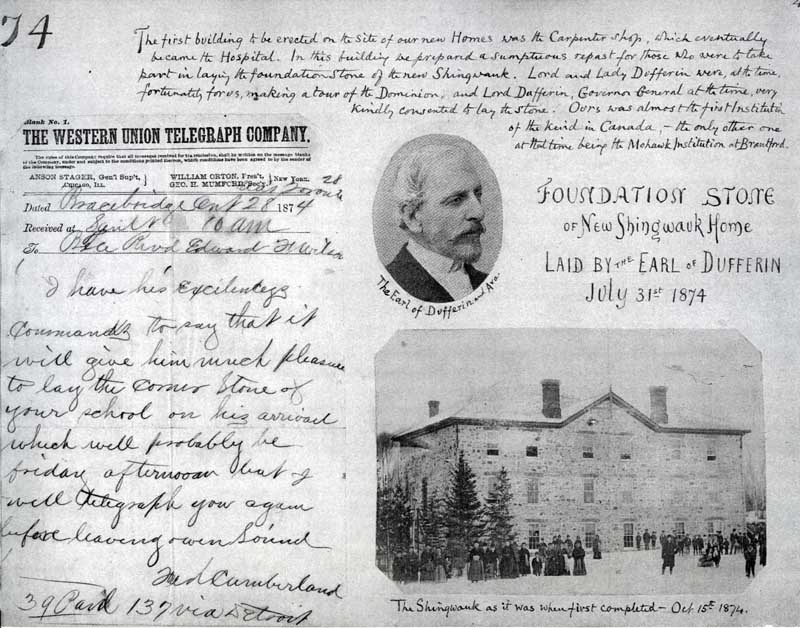 74
The first building to be erected on the site of our new Homes was the Carpenter shop, which eventually
became the Hospital. In this building we prepared a sumptuous repast for those who were to take
part in laying the foundation stone of the new Shingwauk. Lord and Lady Dufferin were, at the time,
fortunately for us, making a tour of the Dominion, and Lord Dufferin, Governor General at the time, very
kindly consented to lay the stone. Ours was almost the first Institution
of the kind in Canada, – the only other one
at that time being the Mohawk Institution at Brantford.
Blank No. 1.
THE WESTERN UNION TELEGRAPH COMPANY.
The rules of this Company require that all messages received for transmission, shall be written on the message blanks
of the Company, under and subject to the conditions printed thereon, which conditions have been agreed to by the sender of
the following message.
ANSON STAGER, Gen'l Sup't,
Chicago, Ill.
WILLIAM ORTON, Pres't,
GEO. H. MUMFORD, Sec'y
New York.
28
Dated Bracebridge Ont 28 1874
Received at 10 am
To Rev'd Edward F Wilson
I have his excellencys
commands to say that it
will give him much pleasure
to lay the corner stone of
your school on his arrival
which will probably be
friday afternoon but I
will telegraph you again
before leaving owen Sound
Fred Cumberland
39 Paid 137 via Detroit
The Earl of Dufferin and Ava.
FOUNDATION STONE
OF NEW Shingwauk Home
LAID BY THE EARL OF DUFFERIN
JULY 31st 1874
The Shingwauk as it was when first completed – Oct. 15th 1874.